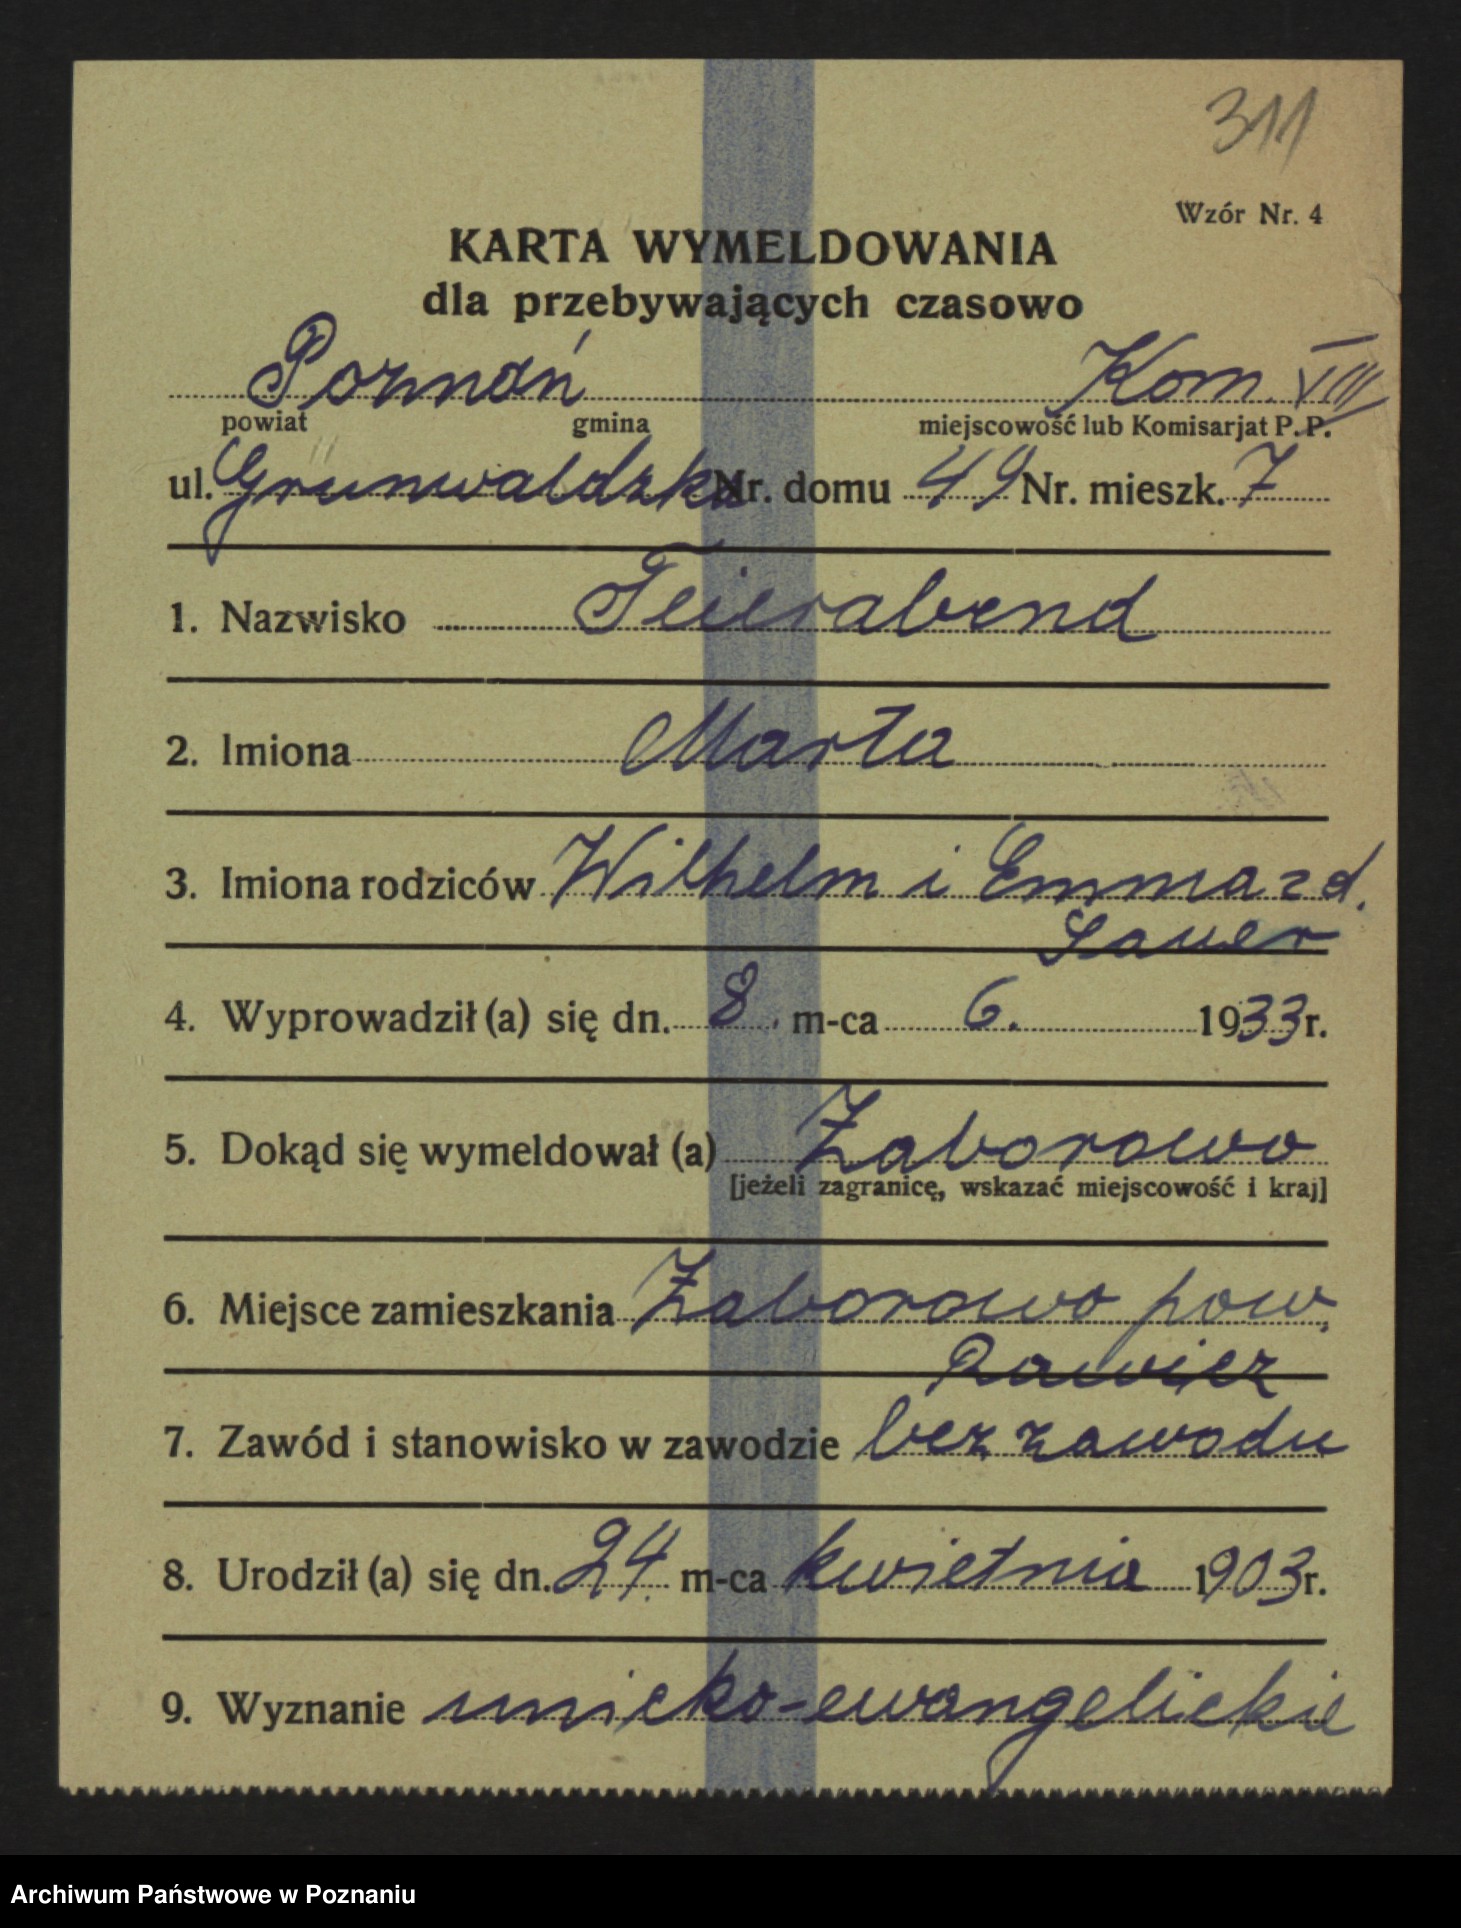 311
Wzór Nr. 4
KARTA WYMELDOWANIA
dla przebywających czasowo
Poznań Kom. VIII
powiat gmina miejscowość lub Komisarjat P. P.
ul. Grunwaldzka Nr. domu 49 Nr. mieszk. 7
1. Nazwisko Feierabend
2. Imiona Marta
3. Imiona rodziców Wilhelm i Emma z d.
Sauer
4. Wyprowadził (a) się dn. 8. m-ca 6. 1933 r.
5. Dokąd się wymeldował (a) Zaborowo
[jeżeli zagranicę, wskazać miejscowość i kraj]
6. Miejsce zamieszkania Zaborowo pow.
Rawicz
7. Zawód i stanowisko w zawodzie bez zawodu
8. Urodził (a) się dn. 24. m-ca kwietnia 1903 r.
9. Wyznanie unicko-ewangelickie
Archiwum Państwowe w Poznaniu